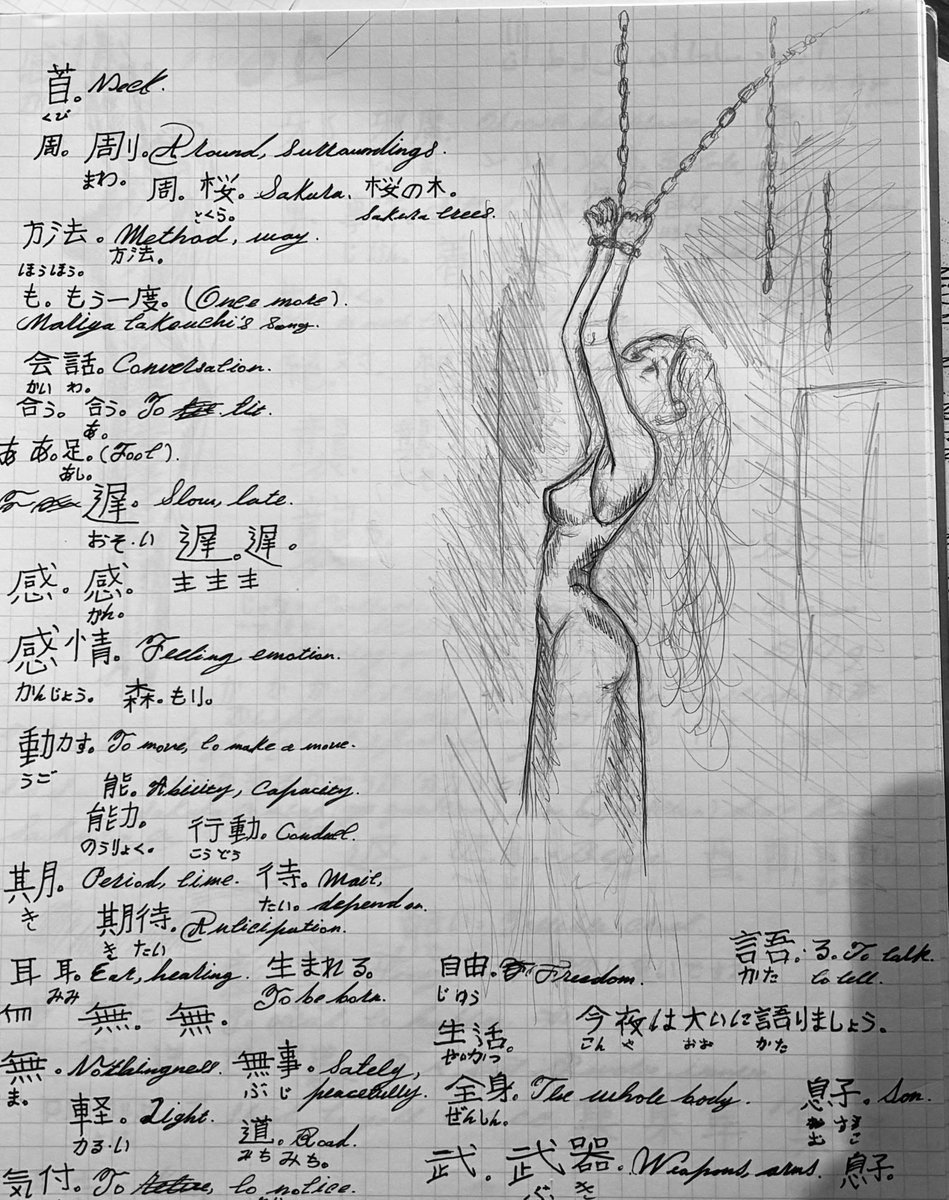 首。Neck.
くび
周。周り。Around, surroundings.
まわ。
周。桜。Sakura、桜の木。
さくら。 Sakura trees.
方法。Method, way.
ほうほう。 方法。
も。もう一度。(Once more).
(Mariya Takeuchi's song.
会話。Conversation.
かい わ。
合う。合う。To fit.
あ。
あ あ。足。(Foot).
あし。
遅。Slow, late.
おそ・い 遅。遅。
感。感。 キキキ
かん。
感情。Feeling emotion.
かんじょう。 森。もり。
動かす。To move, to make a move.
うご
能。Ability, Capacity.
能力。 行動。Conduct.
のうりょく。 こうどう
期。Period, time. 待。Wait,
き たい。 depend on.
期待。Anticipation.
き たい
耳 耳。Ear, hearing. 生まれる。
みみ To be born.
無。無。
無。Nothingness. 無事。Safely,
ま。 ぶじ peacefully.
軽。Light.
かる・い 道。Road.
みち みち。
気付。To notice.
自由。Freedom.
じゆう
言吾。る。To talk.
かた to tell.
生活。
せいかつ
今夜は大いに語りましょう。
こん や おお かた
全身。The whole body.
ぜんしん。
息子。Son.
むす こ
武。武器。Weapons, arms. 息子。
ぶ き